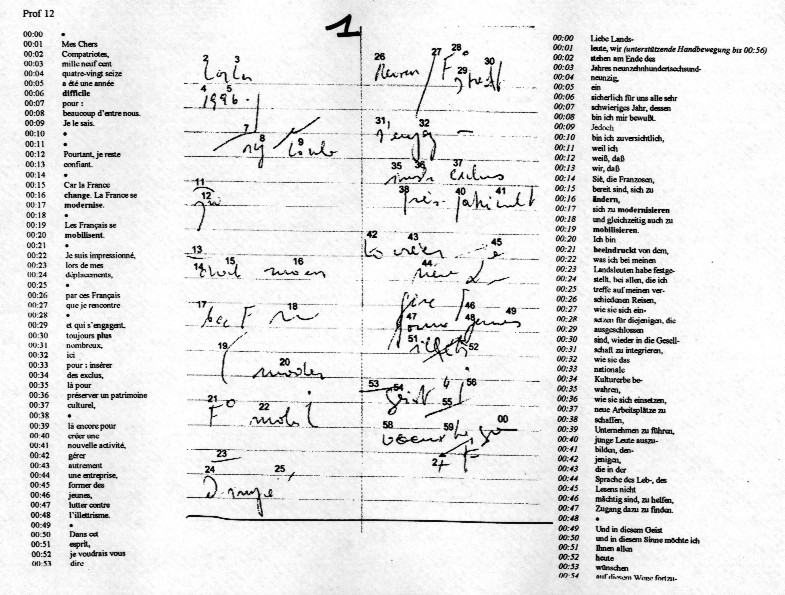 Prof 12
1
00:00 •
00:01 Mes Chers
00:02 Compatriotes,
00:03 mille neuf cent
00:04 quatre-vingt seize
00:05 a été une année
00:06 difficile
00:07 pour :
00:08 beaucoup d'entre nous.
00:09 Je le sais.
00:10 •
00:11 •
00:12 Pourtant, je reste
00:13 confiant.
00:14 •
00:15 Car la France
00:16 change. La France se
00:17 modernise.
00:18 •
00:19 Les Français se
00:20 mobilisent.
00:21 •
00:22 Je suis impressionné,
00:23 lors de mes
00:24 déplacements,
00:25 •
00:26 par ces Français
00:27 que je rencontre
00:28 •
00:29 et qui s'engagent.
00:30 toujours plus
00:31 nombreux,
00:32 ici
00:33 pour : insérer
00:34 des exclus,
00:35 là pour
00:36 préserver un patrimoine
00:37 culturel,
00:38 •
00:39 là encore pour
00:40 créer une
00:41 nouvelle activité,
00:42 gérer
00:43 autrement
00:44 une entreprise,
00:45 former des
00:46 jeunes,
00:47 lutter contre
00:48 l'illettrisme.
00:49 •
00:50 Dans cet
00:51 esprit,
00:52 je voudrais vous
00:53 dire
2 3
4 5
1996.
7 8 9
11
12
13
14 15 16
17 18
19
20
21 22
F° mobil
23
24 25
26 27 28 29 30
31 32
35 36 37
38 40 41
42 43 44 45
46
47 48 49
51 52
53 54 55 56
Geist
58 59 00
00:00 Liebe Lands-
00:01 leute, wir (unterstützende Handbewegung bis 00:56)
00:02 stehen am Ende des
00:03 Jahres neunzehnhundertsechsund-
00:04 neunzig,
00:05 ein
00:06 sicherlich für uns alle sehr
00:07 schwieriges Jahr, dessen
00:08 bin ich mir bewußt.
00:09 Jedoch
00:10 bin ich zuversichtlich,
00:11 weil ich
00:12 weiß, daß
00:13 wir, daß
00:14 Sie, die Franzosen,
00:15 bereit sind, sich zu
00:16 ändern,
00:17 sich zu modernisieren
00:18 und gleichzeitig auch zu
00:19 mobilisieren.
00:20 Ich bin
00:21 beeindruckt von dem,
00:22 was ich bei meinen
00:23 Landsleuten habe festge-
00:24 stellt, bei allen, die ich
00:25 treffe auf meinen ver-
00:26 schiedenen Reisen,
00:27 wie sie sich ein-
00:28 setzen für diejenigen, die
00:29 ausgeschlossen
00:30 sind, wieder in die Gesell-
00:31 schaft zu integrieren,
00:32 wie sie das
00:33 nationale
00:34 Kulturerbe be-
00:35 wahren,
00:36 wie sie sich einsetzen,
00:37 neue Arbeitsplätze zu
00:38 schaffen,
00:39 Unternehmen zu führen,
00:40 junge Leute auszu-
00:41 bilden, den-
00:42 jenigen,
00:43 die in der
00:44 Sprache des Leb-, des
00:45 Lesens nicht
00:46 mächtig sind, zu helfen,
00:47 Zugang dazu zu finden.
00:48 •
00:49 Und in diesem Geist
00:50 und in diesem Sinne möchte ich
00:51 Ihnen allen
00:52 heute
00:53 wünschen
00:54 auf diesem Wege fortzu-